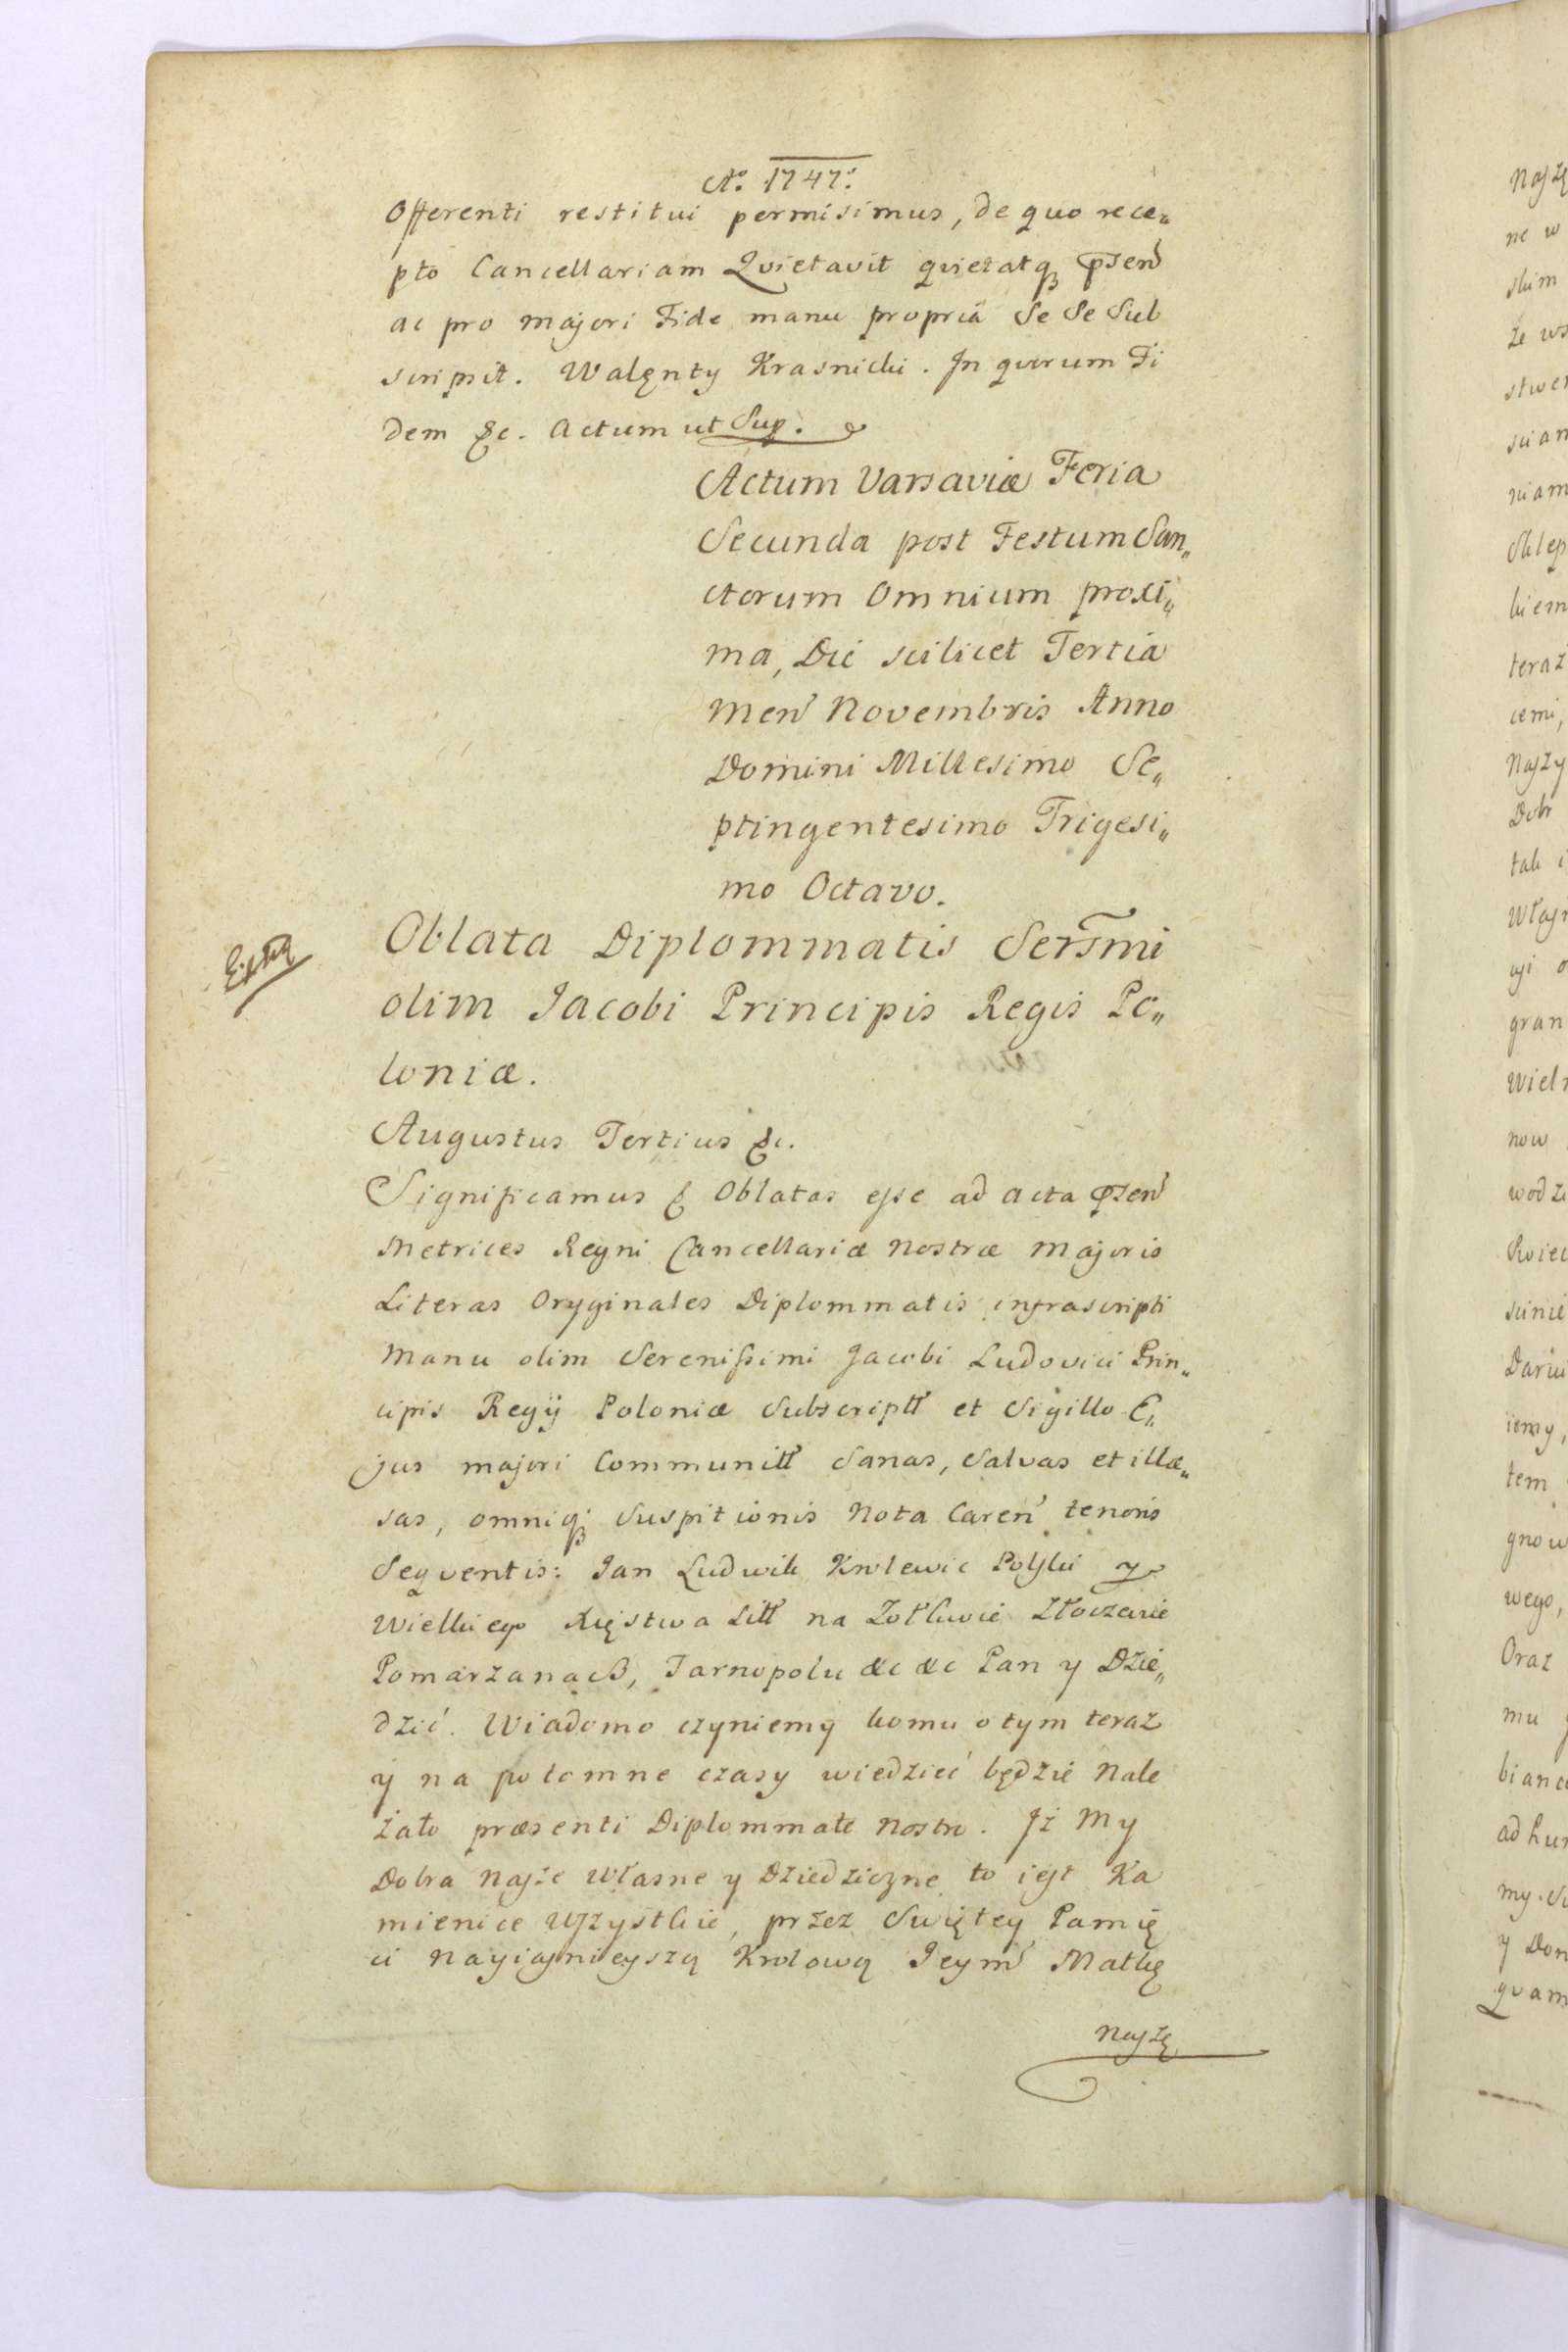 Aº. 1747.
Offerenti restitui permisimus, de quo rece„
pto Cancellariam Quietavit quietatq; pñsen
ac pro majori Fide manu propriâ Se Se Sub
scripsit. Walęnty Krasnicki. In quorum Fi
dem &c. Actum ut Sup.
Actum Varsaviæ Feria
Secunda post Festum San„
ctorum Omnium proxi„
ma, Die scilicet Tertia
Men Novembris Anno
Domini Millesimo Se„
ptingentesimo Trigesi„
mo Octavo.
Oblata Diplommatis Serñmi
olim Jacobi Principis Regis Po„
loniæ.
Augustus Tertius &c.
Significamus & Oblatas esse ad acta pñsen
Metrices Regni Cancellariæ Nostræ Majoris
Literas Oryginales Diplommatis infrascripti
Manu olim Serenissimi Jacobi Ludovici Prin„
cipis Regÿ Poloniæ Subscriptt et Sigillo E„
jus majori Communitt Sanas, Salvas et illæ„
sas, omniq; Suspitionis Nota Caren tenoris
Seqventis: Jan Ludwik Krolewic Polski y
Wielkiego Xięstwa Litt na Zołkwie Złoczewie
Pomarzanach, Tarnopolu &c &c Pan y Dzie„
dzić. Wiadomo czyniemy komu o tym teraz
y na potomne czasy wiedzieć będzie Nale
żało præsenti Diplommate Nostro. Iż My
Dobra Nasze Własne y Dziedziczne to iest Ka
mienice Wszystkie, przez Swiętey Pamię
ci Nayiasnieyszą Krolową Jeym Matkę
Naszę